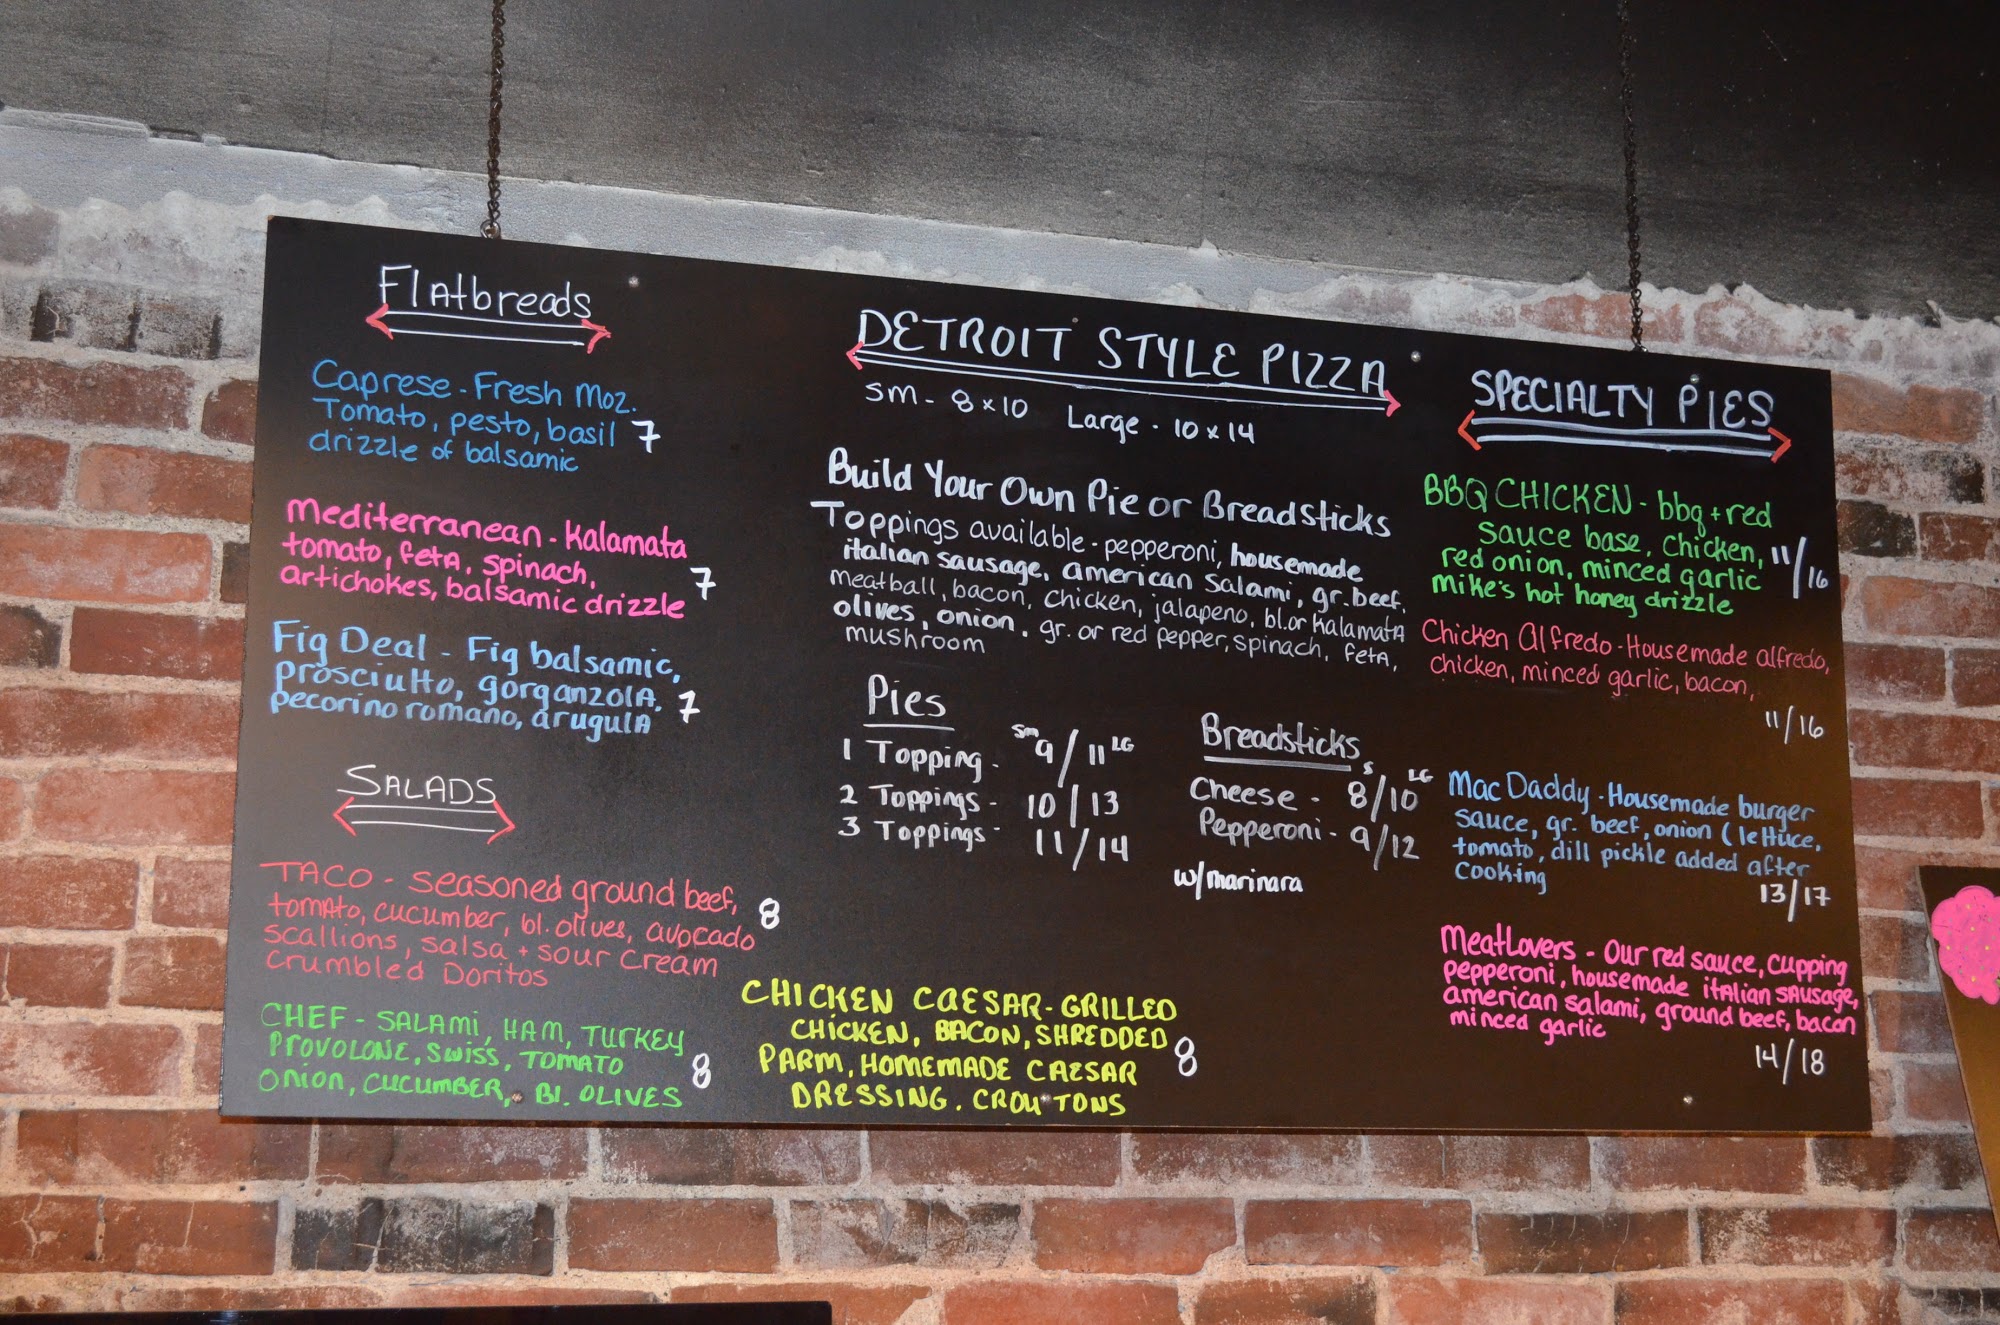 Flatbreads
Caprese - Fresh Moz.
Tomato, pesto, basil 7
drizzle of balsamic
Mediterranean - Kalamata
tomato, feta, spinach,
artichokes, balsamic drizzle 7
Fig Deal - Fig balsamic,
prosciutto, gorganzola,
pecorino romano, arugula 7
SALADS
TACO - seasoned ground beef,
tomato, cucumber, bl. olives, avocado 8
scallions, salsa + sour cream
crumbled Doritos
CHEF - SALAMI, HAM, TURKEY
PROVOLONE, SWISS, TOMATO
ONION, CUCUMBER, Bl. OLIVES 8
DETROIT STYLE PIZZA
SM - 8x10 Large - 10x14
Build Your Own Pie or Breadsticks
Toppings available - pepperoni, housemade
italian sausage, american salami, gr. beef,
meatball, bacon, chicken, jalapeno, bl. or kalamata
olives, onion, gr. or red pepper, spinach, feta,
mushroom
Pies
1 Topping - Sm 9/11 LG
2 Toppings - 10/13
3 Toppings - 11/14
Breadsticks
S LG
Cheese - 8/10
Pepperoni - 9/12
w/marinara
CHICKEN CAESAR - GRILLED
CHICKEN, BACON, SHREDDED
PARM, HOMEMADE CAESAR 8
DRESSING, CROUTONS
SPECIALTY PIES
BBQ CHICKEN - bbq + red
sauce base, chicken,
red onion, minced garlic 11/16
mike's hot honey drizzle
Chicken Alfredo - Housemade alfredo,
chicken, minced garlic, bacon,
11/16
Mac Daddy - Housemade burger
sauce, gr. beef, onion (lettuce,
tomato, dill pickle added after
cooking
13/17
MeatLovers - Our red sauce, cupping
pepperoni, housemade italian sausage,
american salami, ground beef, bacon
minced garlic
14/18